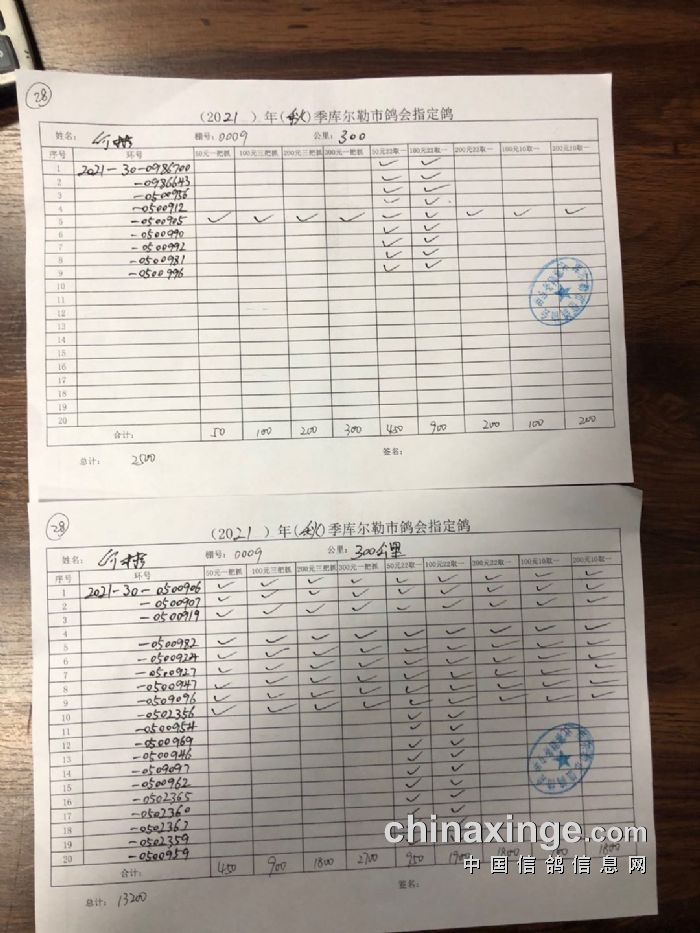 28
(2021)年(秋)季库尔勒市鸽会指定鸽
姓名: 棚号:0009 公里:300
序号 环号 50元一把抓 100元三把抓 200元三把抓 300元一把抓 50元22取一 100元22取一 200元22取一 100元10取一 200元10取一
1 2021-30-0986700
2 -0986643
3 -0500936
4 -0500912
5 -0500905 ✓ ✓ ✓ ✓ ✓ ✓ ✓ ✓ ✓
6 -0500990
7 -0500992
8 -0500981
9 -0500996
10
11
12
13
14
15
16
17
18
19
20
合计: 50 100 200 300 450 900 200 100 200
总计: 2500 签名:
28
(2021)年(秋)季库尔勒市鸽会指定鸽
姓名: 棚号:0009 公里:300公里
序号 环号 50元一把抓 100元三把抓 200元三把抓 300元一把抓 50元22取一 100元22取一 200元22取一 100元10取一 200元10取一
1 2021-30-0500906
2 -0500907
3 -0500919
4
5 -0500982
6 -0500924
7 -0500927
8 -0500947
9 -0509096
10 -0502356
11 -0500954
12 -0500969
13 -0500946
14 -0509097
15 -0500962
16 -0502365
17 -0502360
18 -0502362
19 -0502359
20 -0500959
合计: 450 900 1800 2700 950 1800
总计: 13200 签名:
chinaxinge.com
中国信鸽信息网